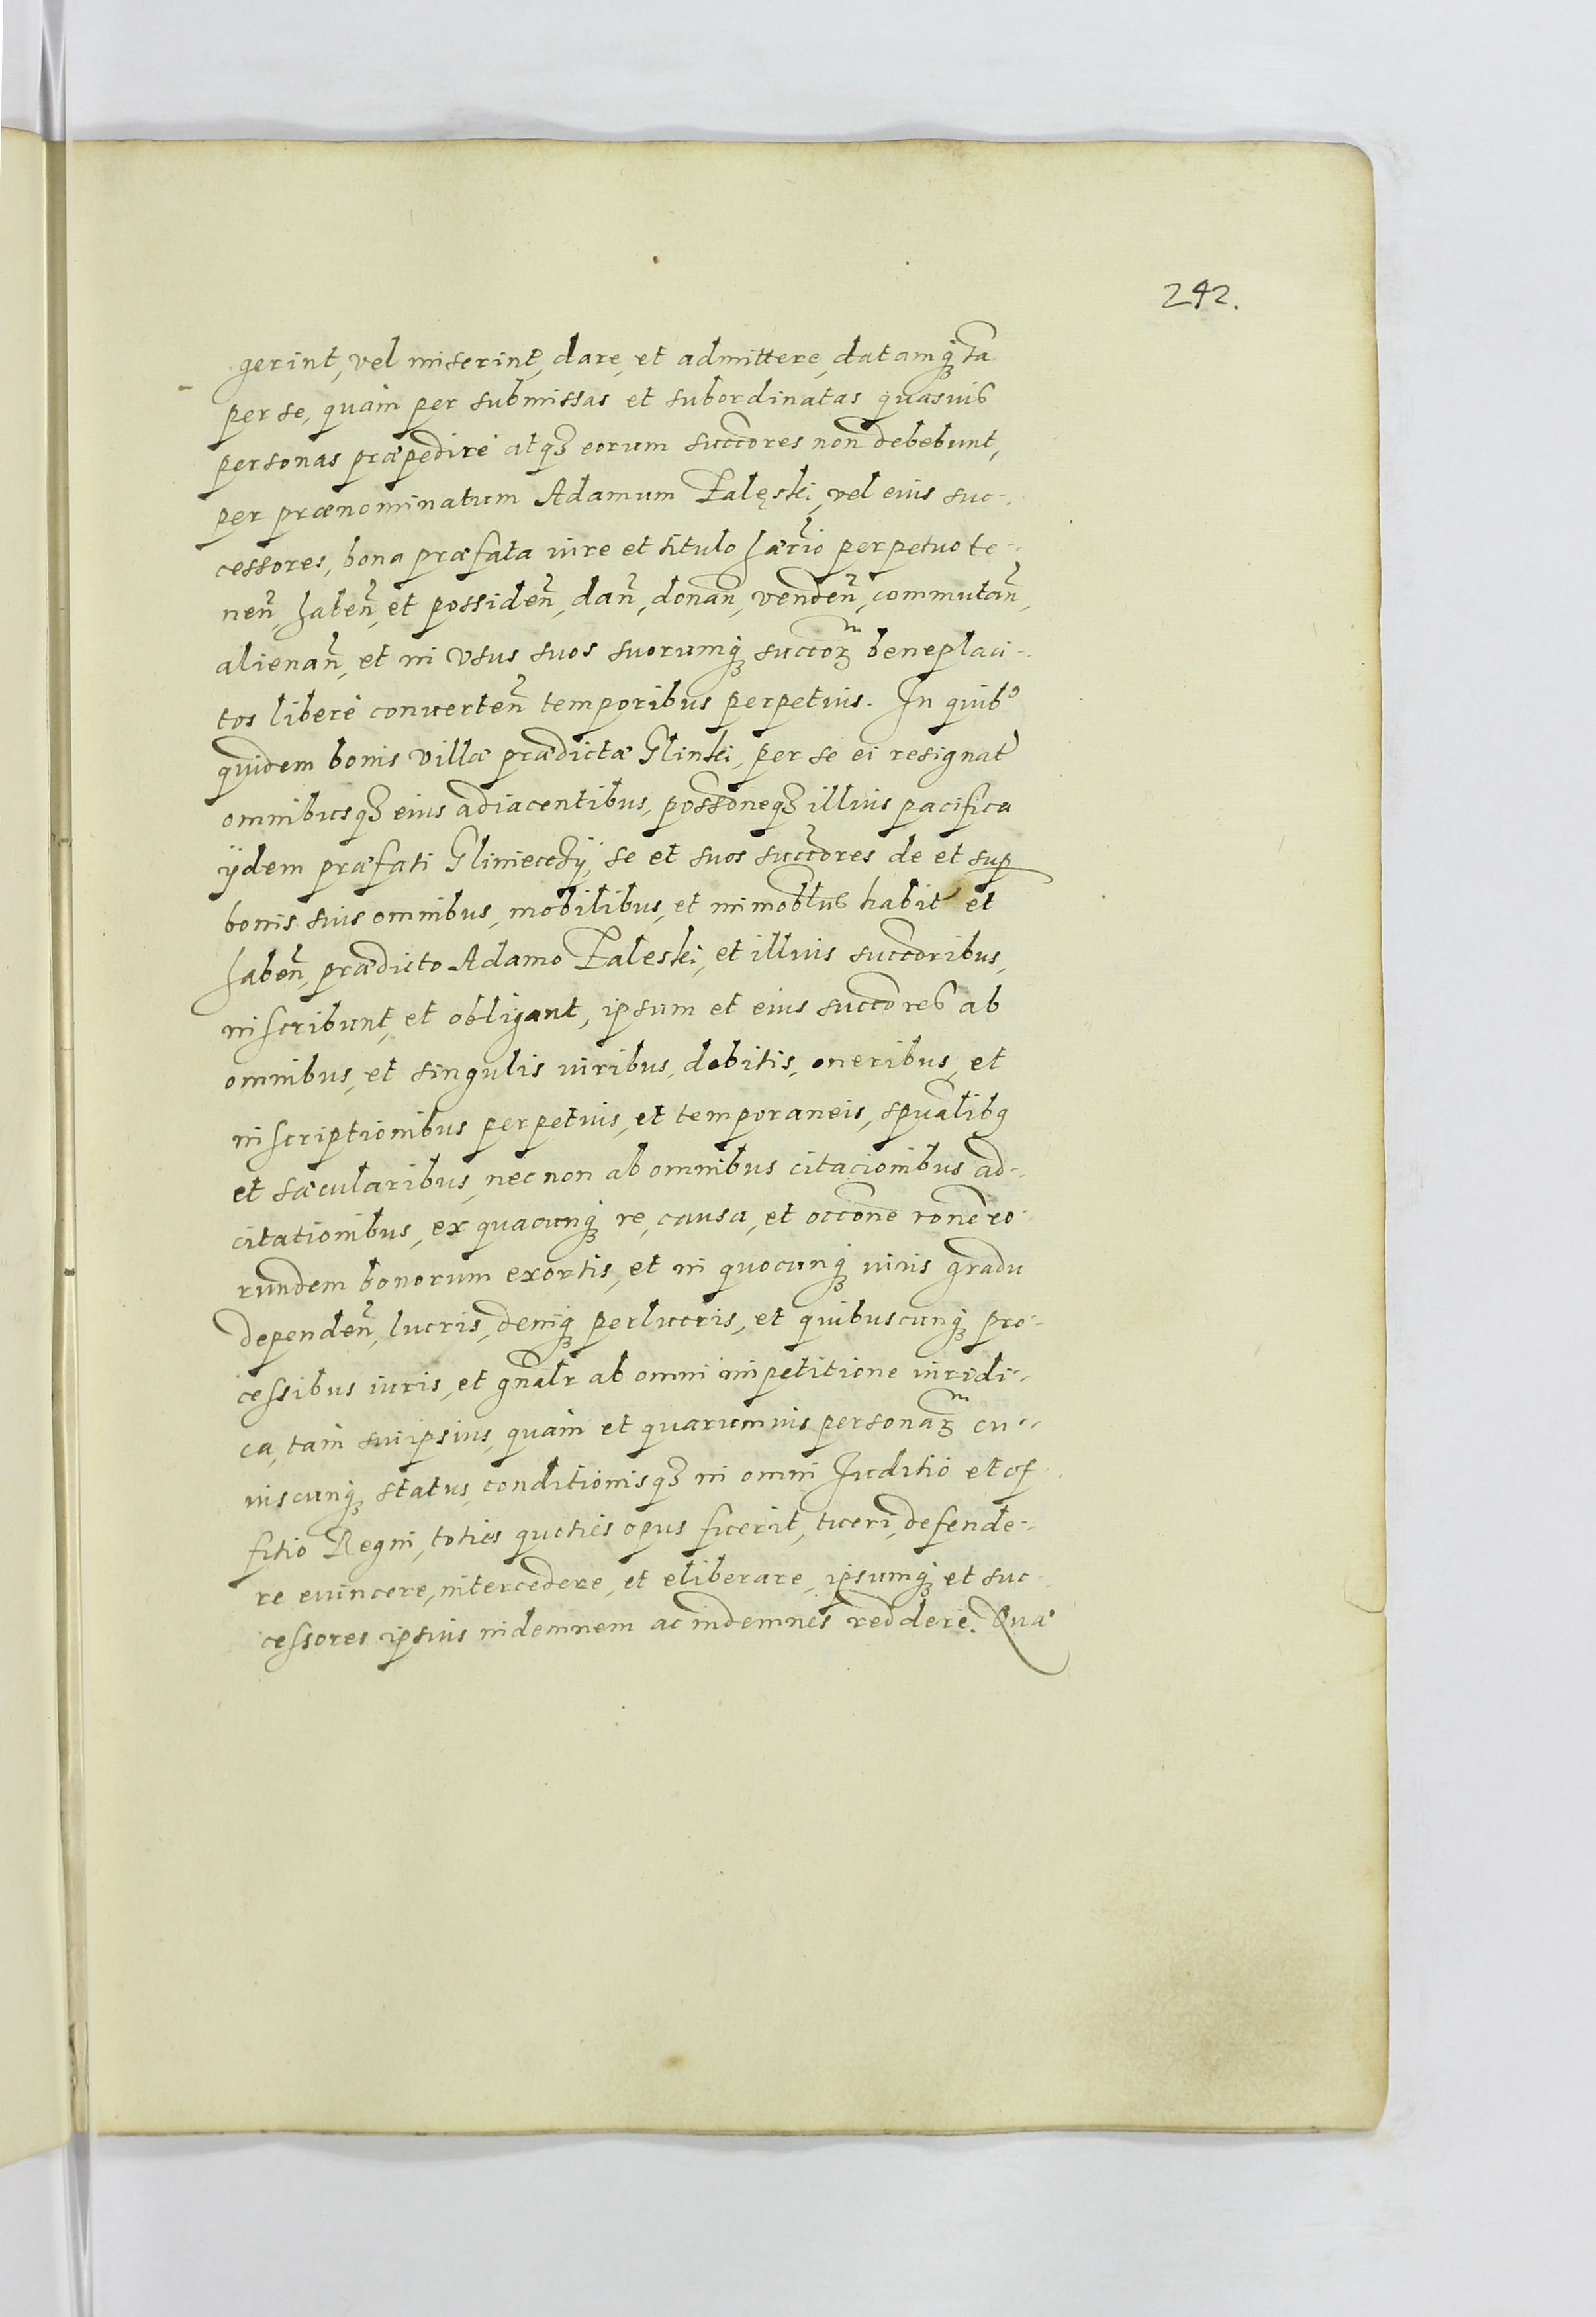 242.
gerint, vel miserint, dare, et admittere, datamq₃ tã
per se, quàm per submissas et subordinatas quasuis
personas præpedire atq₃ eorum succores non debebunt,
per prænominatum Adamum Zalęski, vel eius suc-
cessores, bona præfata iure et titulo hærio perpetuo te-
nen̄, haben̄, et possiden̄, dan̄, donan̄, venden̄, commutan̄,
alienan̄, et in vsus suos suorumq₃ succorꝫ beneplaci-
tos liberè conuerten̄ temporibus perpetuis. In quib⁹
quidem bonis villæ prædictæ Glinki, per se ei resignat̄
omnibusq₃ eius adiacentibus, possoneq₃ illius pacifica
ijdem præfati Glinieccÿ, se et suos succores de et sup
bonis suis omnibus, mobilibus, et immoblus habit̄ et
haben̄, prædicto Adamo Zaleski, et illius succoribus,
inscribunt, et obligant, ipsum et eius succores ab
omnibus, et singulis iuribus, debitis, oneribus, et
inscriptionibus perpetuis, et temporaneis, spualibꝫ
et sæcularibus, nec non ab omnibus citacionibus ad-
citationibus, ex quacunq₃ re, causa, et occone rone eo-
rundem bonorum exortis, et in quocunq₃ iuris gradu
dependen̄, lucris, deniq₃ perlucris, et quibuscunq₃ pro-
cessibus iuris, et gnalr ab omni impetitione iuridi-
ca, tàm suiipsius, quàm et quarumuis personarꝫ cu-
iuscunq₃ status, conditionisq₃ in omni Iuditio et of-
fitio Regni, toties quoties opus fuerit, tueri, defende-
re euincere, intercedere, et eliberare, ipsumq₃ et suc-
cessores ipsius indemnem ac indemnes reddere. Quæ